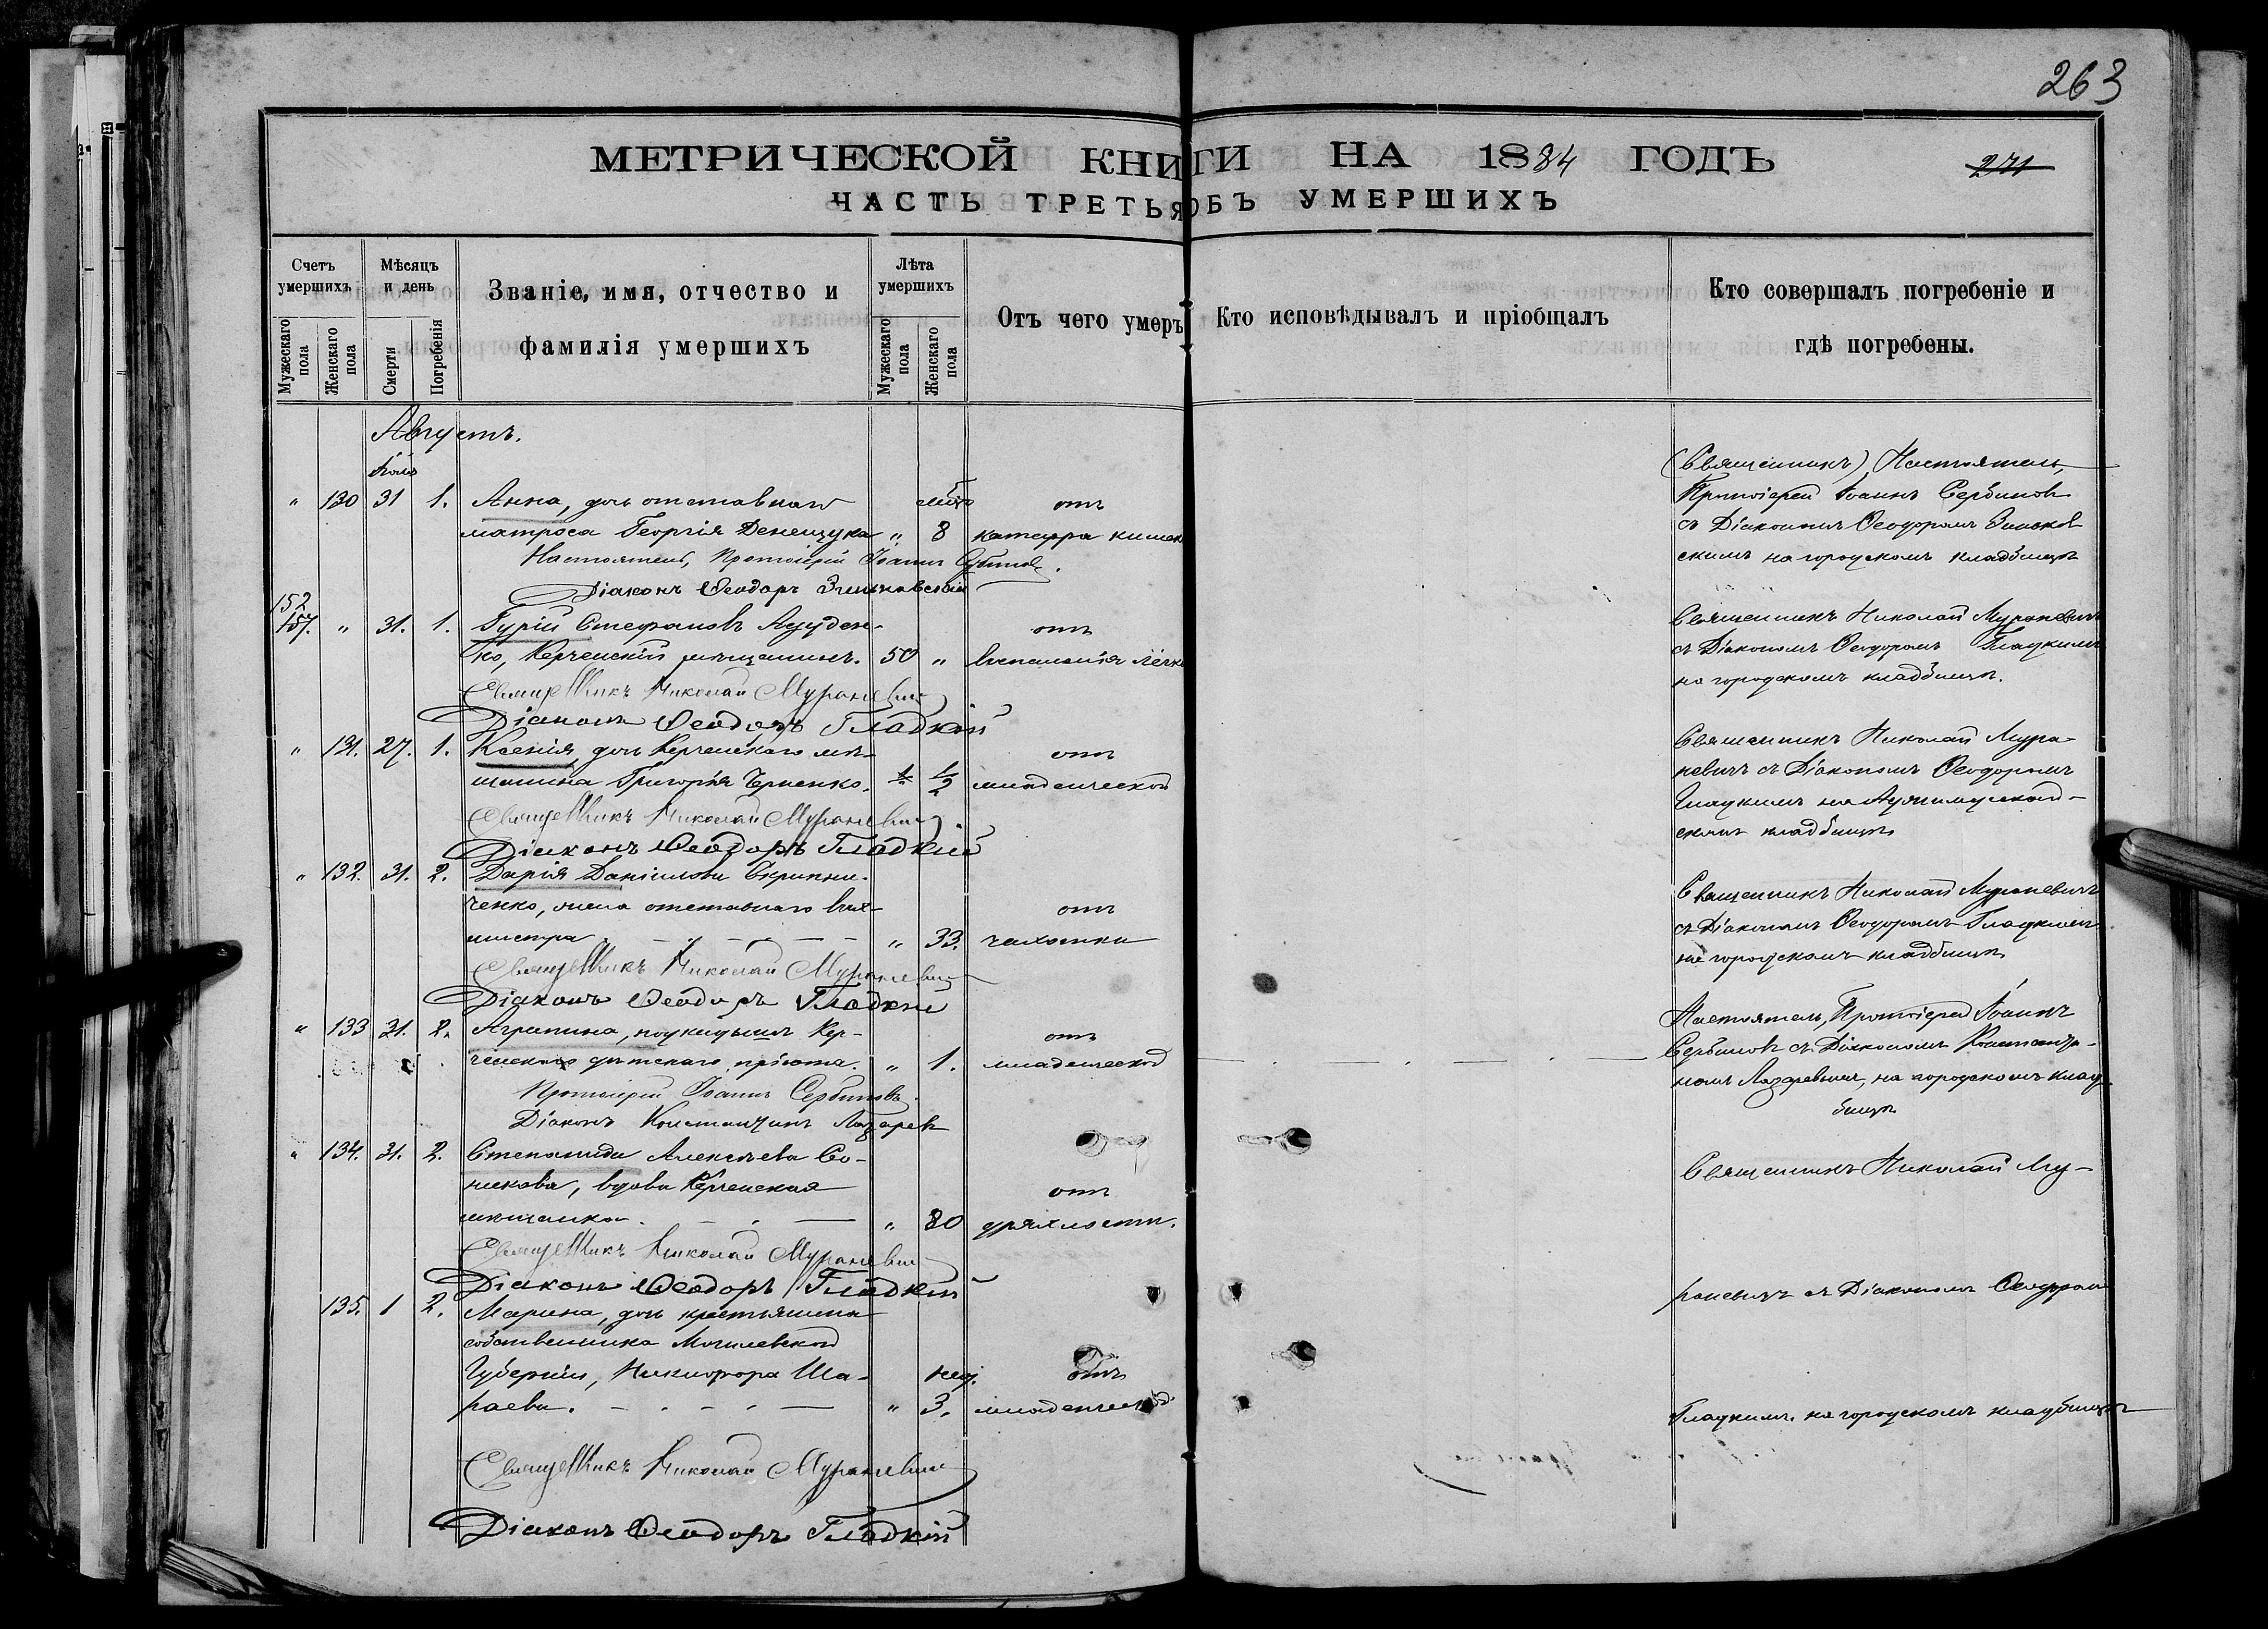 263
МЕТРИЧЕСКОЙ КНИГИ НА 1884 ГОДЪ
271
ЧАСТЬ ТРЕТЬЯ ОБЪ УМЕРШИХЪ
Счетъ умершихъ
Мужескаго пола
Женскаго пола
Мѣсяцъ и день
Смерти
Погребенія
Званіе, имя, отчество и
фамилія умершихъ
Лѣта умершихъ
Мужескаго пола
Женскаго пола
Отъ чего умеръ
Кто исповѣдывалъ и пріобщалъ
Кто совершалъ погребеніе и
гдѣ погребены.
Августъ.
" 130 31 1. Анна, дочь отставнаго отъ
матроса Георгія Денещука " 8 катарра кишек
Настоятель, Протоіерей Іоаннъ Сербиновъ.
Діаконъ Ѳеодоръ Зеньковскій
(Священникъ) Настоятель,
Протоіерей Іоаннъ Сербиновъ
съ Діакономъ Ѳеодоромъ Зеньков
скимъ на городскомъ кладбищѣ
152
157. " 31. 1. Гурій Стефановъ отъ
ко, Керченскій мѣщанинъ. 50 " воспаленія лёгк
Священникъ Николай Мураневич
Діаконъ Ѳеодоръ Гладкій
Священникъ Николай Мураневичъ
съ Діакономъ Ѳеодоромъ Гладкимъ
на городскомъ кладбищѣ.
" 131. 27. 1. Ксенія, дочь Керченскаго мѣ- отъ
щанина Григорія Черненко. 1/2 младенческой
Священникъ Николай Мураневич
Діаконъ Ѳеодоръ Гладкій
Священникъ Николай Мура-
невичъ съ Діакономъ Ѳеодоромъ
Гладкимъ на
скомъ кладбищѣ
" 132. 31. 2. Дарія Даніилова Скрипни-
ченко, жена отставнаго отъ
" 33. чахотки
Священникъ Николай Мураневич
Діаконъ Ѳеодоръ Гладкій
Священникъ Николай Мураневичъ
съ Діакономъ Ѳеодоромъ Гладкимъ
на городскомъ кладбищѣ
" 133 31. 2. Агрипина, подкидышъ Кер- отъ
ченскаго дѣтскаго пріюта. " 1. младенческой
Протоіерей Іоаннъ Сербиновъ
Діаконъ Константинъ Лазаревъ
Настоятель, Протоіерей Іоаннъ
Сербиновъ съ Діакономъ Константи-
номъ Лазаревымъ, на городскомъ клад-
бищѣ
" 134. 31. 2. Степанида Алексѣева Со-
никова, вдова Керченская отъ
мѣщанка. " 80 дряхлости.
Священникъ Николай Мураневич
Діаконъ Ѳеодоръ Гладкій
Священникъ Николай Му-
раневичъ съ Діакономъ Ѳеодором
135. 1 2. Марина, дочь крестьянина
собственника Могилевской
Губерніи, Никифора Ша- нед. отъ
раева. " 3. младенческой
Священникъ Николай Мураневич
Діаконъ Ѳеодоръ Гладкій
Гладкимъ на городскомъ кладбищѣ